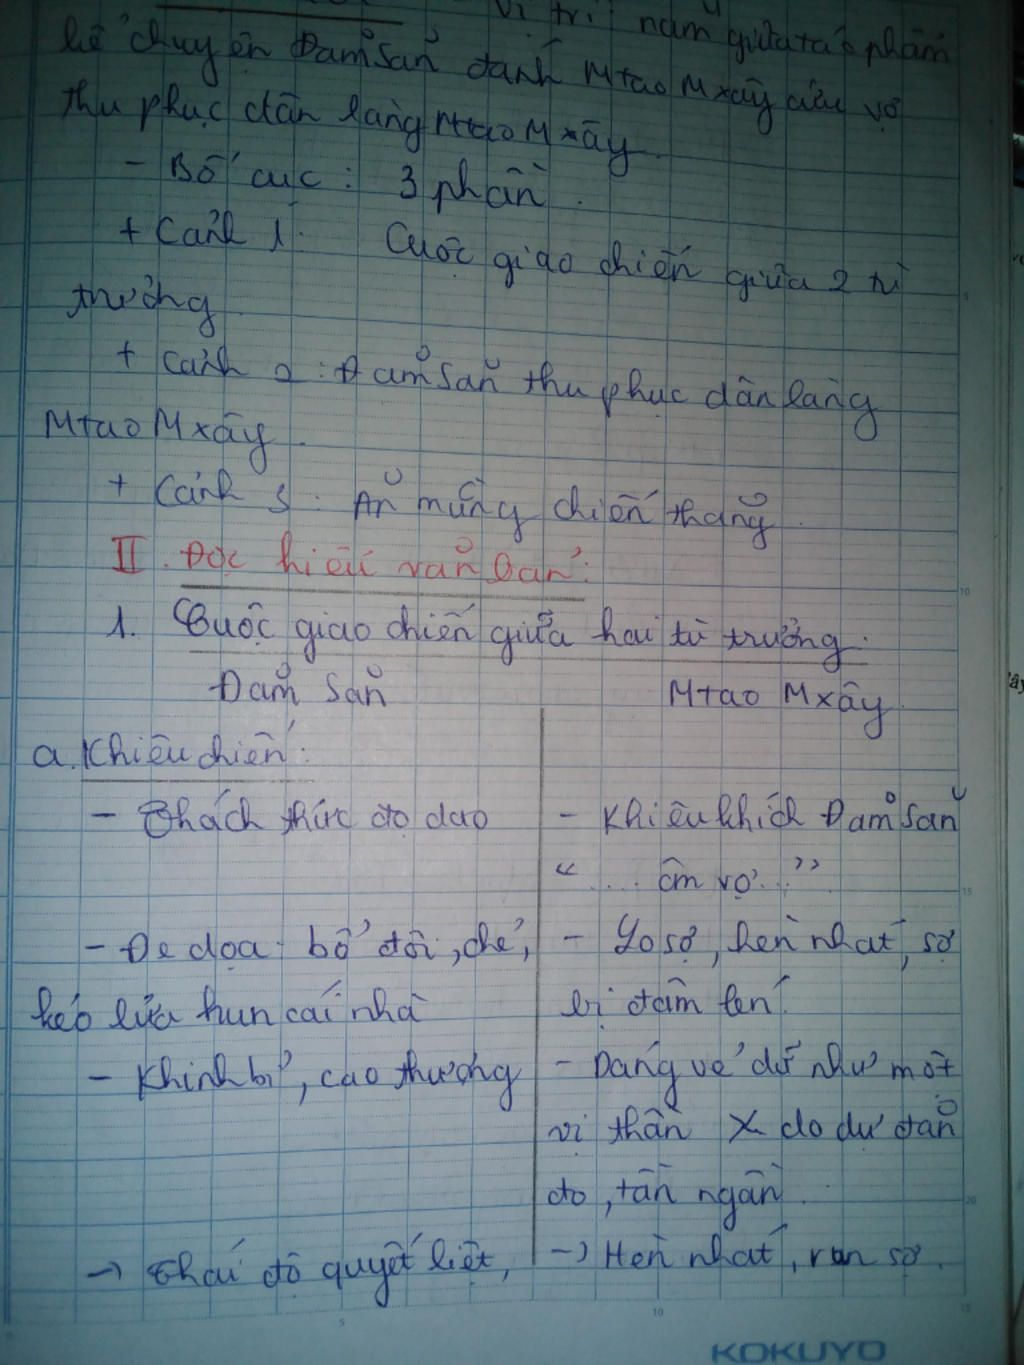 vị trí nằm giữa tác phẩm
kể chuyện Đăm Săn đánh Mtao Mxây cứu vợ
thu phục dân làng Mtao Mxây
- Bố cục : 3 phần .
+ Cảnh 1 : Cuộc giao chiến giữa 2 tù
trưởng
+ Cảnh 2 : Đăm Săn thu phục dân làng
Mtao Mxây .
+ Cảnh 3 : Ăn mừng chiến thắng .
II . Đọc hiểu văn bản :
1. Cuộc giao chiến giữa hai tù trưởng .
Đăm Săn
Mtao Mxây
a. Khiêu chiến :
- Thách thức đọ dao
- Khiêu khích Đăm Săn
" .... ôm vợ .. "
- Đe dọa : bổ đôi , chẻ ,
kéo lửa hun cái nhà
- Lo sợ , hèn nhát , sợ
bị đâm lén .
- Khinh bỉ , cao thượng
- Dáng vẻ dữ như một
vị thần X do dự đắn
đo , tần ngần .
-> Thái độ quyết liệt ,
-> Hèn nhát , run sợ .
5
10
15
20
5
10
15
KOKUYO